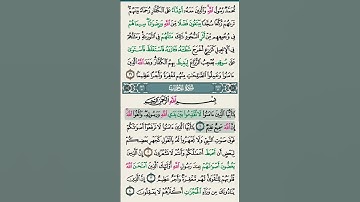 مُّحَمَّدٌ رَّسُولُ اللَّهِ وَالَّذِينَ مَعَهُ أَشِدَّاءُ عَلَى الْكُفَّارِ رُحَمَاءُ بَيْنَهُمْ
تَرَاهُمْ رُكَّعًا سُجَّدًا يَبْتَغُونَ فَضْلًا مِّنَ اللَّهِ وَرِضْوَانًا سِيمَاهُمْ
فِي وُجُوهِهِم مِّنْ أَثَرِ السُّجُودِ ذَٰلِكَ مَثَلُهُمْ فِي التَّوْرَاةِ وَمَثَلُهُمْ
فِي الْإِنجِيلِ كَزَرْعٍ أَخْرَجَ شَطْأَهُ فَآزَرَهُ فَاسْتَغْلَظَ فَاسْتَوَىٰ
عَلَىٰ سُوقِهِ يُعْجِبُ الزُّرَّاعَ لِيَغِيظَ بِهِمُ الْكُفَّارَ وَعَدَ اللَّهُ الَّذِينَ
آمَنُوا وَعَمِلُوا الصَّالِحَاتِ مِنْهُم مَّغْفِرَةً وَأَجْرًا عَظِيمًا ٢٩
سُورَةُ الحُجُرَاتِ
بِسْمِ اللَّهِ الرَّحْمَٰنِ الرَّحِيمِ
يَا أَيُّهَا الَّذِينَ آمَنُوا لَا تُقَدِّمُوا بَيْنَ يَدَيِ اللَّهِ وَرَسُولِهِ وَاتَّقُوا اللَّهَ
إِنَّ اللَّهَ سَمِيعٌ عَلِيمٌ ١ يَا أَيُّهَا الَّذِينَ آمَنُوا لَا تَرْفَعُوا أَصْوَاتَكُمْ
فَوْقَ صَوْتِ النَّبِيِّ وَلَا تَجْهَرُوا لَهُ بِالْقَوْلِ كَجَهْرِ بَعْضِكُمْ
لِبَعْضٍ أَن تَحْبَطَ أَعْمَالُكُمْ وَأَنتُمْ لَا تَشْعُرُونَ ٢ إِنَّ الَّذِينَ
يَغُضُّونَ أَصْوَاتَهُمْ عِندَ رَسُولِ اللَّهِ أُولَٰئِكَ الَّذِينَ امْتَحَنَ اللَّهُ
قُلُوبَهُمْ لِلتَّقْوَىٰ لَهُم مَّغْفِرَةٌ وَأَجْرٌ عَظِيمٌ ٣ إِنَّ الَّذِينَ
يُنَادُونَكَ مِن وَرَاءِ الْحُجُرَاتِ أَكْثَرُهُمْ لَا يَعْقِلُونَ ٤